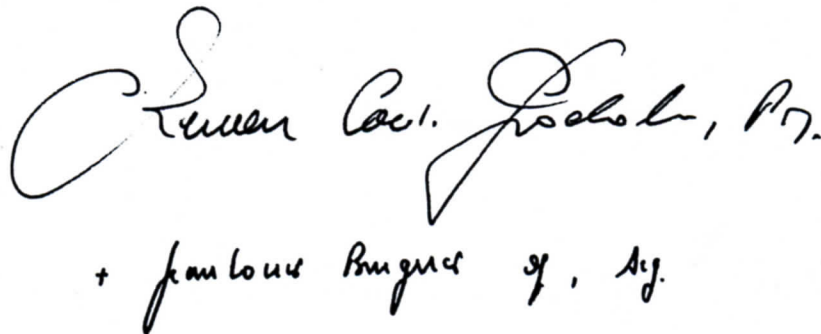 Zenon Card. Grocholewski, Pr.
+ Jean Louis Bruguès op, Sg.